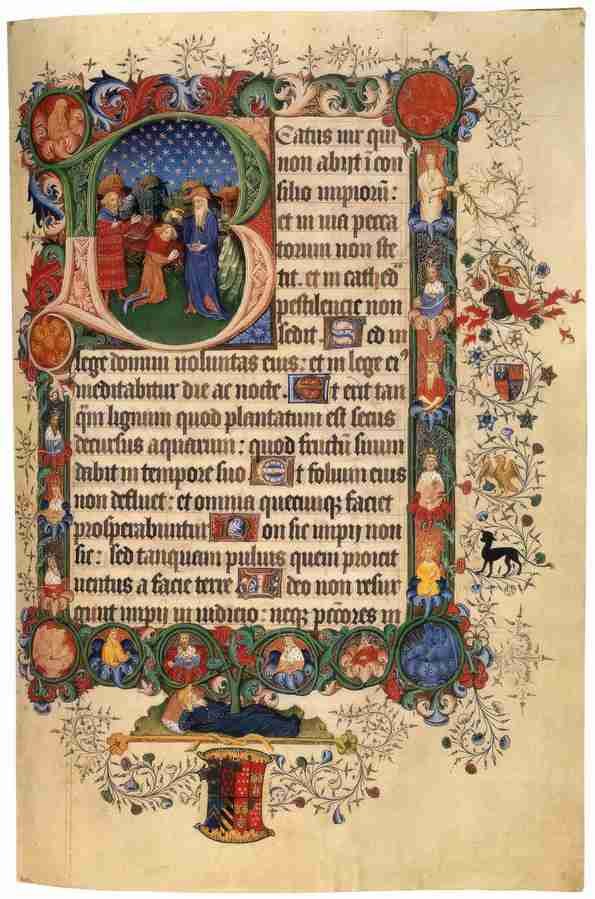 Beatus uir qui
non abijt i con
silio impiorū:
et in uia pecca
torum non ste
tit. et in cathed̄
pestilencie non
sedit. Sed in
lege domini uoluntas eius: et in lege ei᾽
meditabitur die ac nocte. Et erit tan
q̄m lignum quod plantatum est secus
decursus aquarum: quod fructū suum
dabit in tempore suo Et folium eius
non defluet: et omnia quecumq; faciet
prosperabuntur Non sic impij non
sic: sed tanquam puluis quem proicit
uentus a facie terre Ideo non resur
gunt impij in iudicio: neq; pc̄c̄ores in